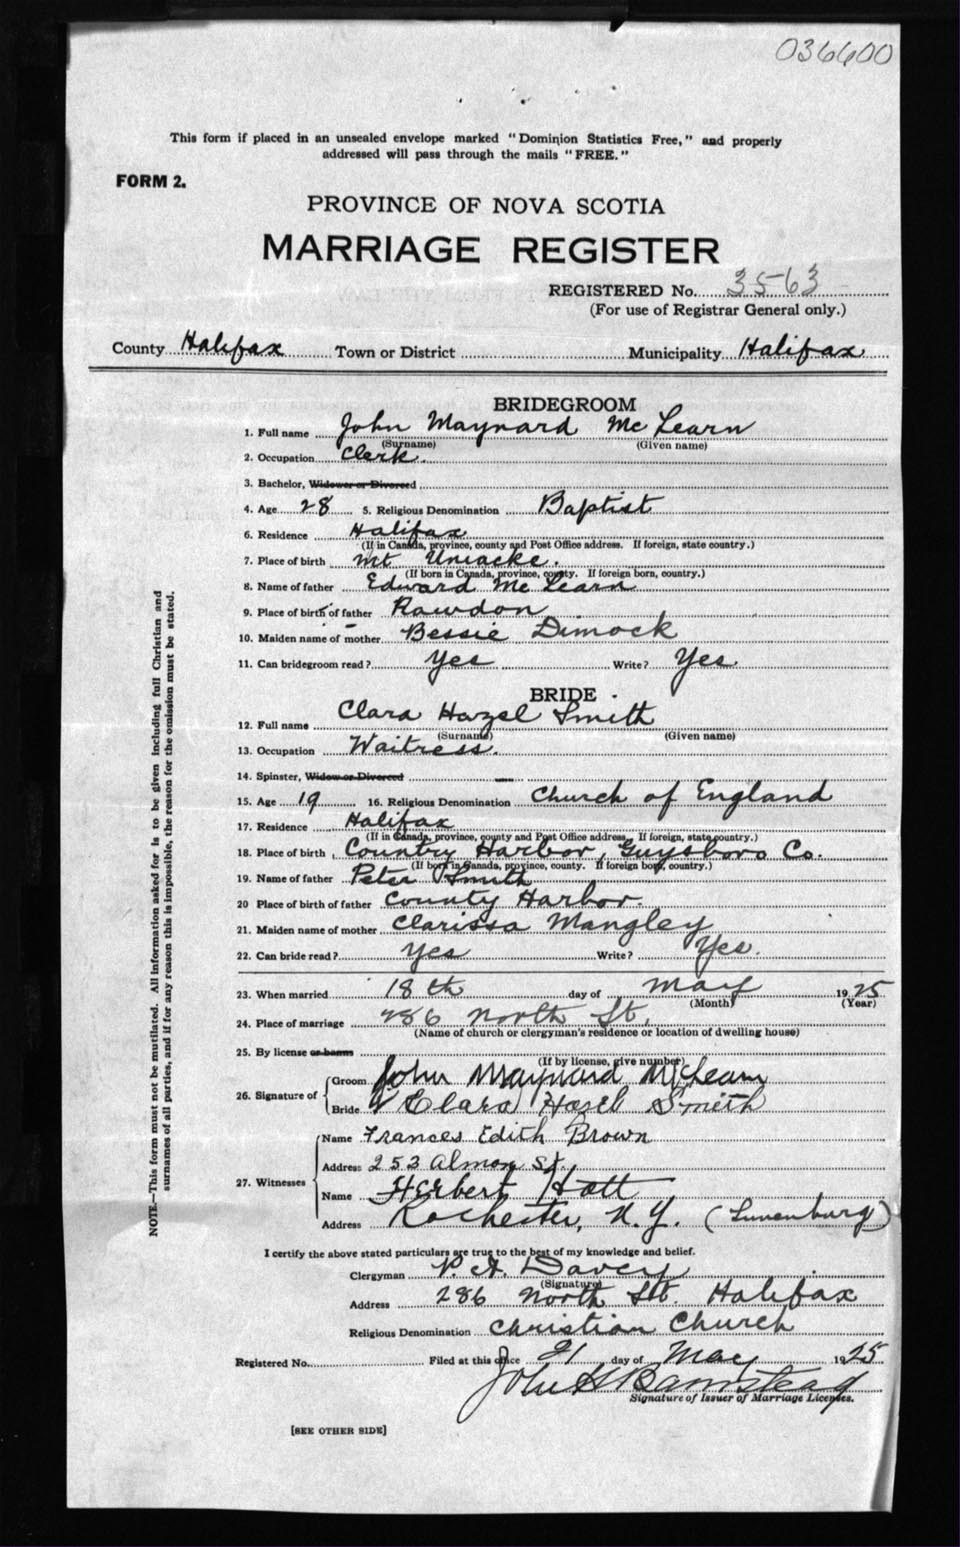 036600
This form if placed in an unsealed envelope marked "Dominion Statistics Free," and properly
addressed will pass through the mails "FREE."
FORM 2.
PROVINCE OF NOVA SCOTIA
MARRIAGE REGISTER
REGISTERED No. 3563
(For use of Registrar General only.)
County Halifax Town or District Municipality Halifax
BRIDEGROOM
1. Full name John Maynard McLearn
(Surname) (Given name)
2. Occupation Clerk.
3. Bachelor, Widower or Divorced
4. Age 28 5. Religious Denomination Baptist
6. Residence Halifax
(If in Canada, province, county and Post Office address. If foreign, state country.)
7. Place of birth Mt Uniacke.
(If born in Canada, province, county. If foreign born, country.)
8. Name of father Edward McLearn
9. Place of birth of father Rawdon
10. Maiden name of mother Bessie Dimock
11. Can bridegroom read? Yes Write? Yes.
BRIDE
12. Full name Clara Hazel Smith
(Surname) (Given name)
13. Occupation Waitress.
14. Spinster, Widow or Divorced
15. Age 19 16. Religious Denomination Church of England
17. Residence Halifax
(If in Canada, province, county and Post Office address. If foreign, state country.)
18. Place of birth Country Harbor, Guysboro Co.
(If born in Canada, province, county. If foreign born, country.)
19. Name of father Peter Smith
20 Place of birth of father County Harbor.
21. Maiden name of mother Clarissa Mangley
22. Can bride read? Yes Write? Yes.
23. When married 18th day of May 1925
(Month) (Year)
24. Place of marriage 286 North St.
(Name of church or clergyman's residence or location of dwelling house)
25. By license or banns
(If by license, give number)
26. Signature of Groom John Maynard McLearn
Bride Clara Hazel Smith
27. Witnesses Name Frances Edith Brown
Address 253 Almon St.
Name Herbert Hatt
Address Rochester, N.Y. (Lunenburg)
I certify the above stated particulars are true to the best of my knowledge and belief.
Clergyman P. A. Davey
(Signature)
Address 286 North St. Halifax
Religious Denomination Christian Church
Registered No. Filed at this office 21 day of May 1925
John H Barnstead
Signature of Issuer of Marriage Licenses.
[SEE OTHER SIDE]
NOTE—This form must not be mutilated. All information asked for is to be given including full Christian and
surnames of all parties, and if for any reason this is impossible, the reason for the omission must be stated.